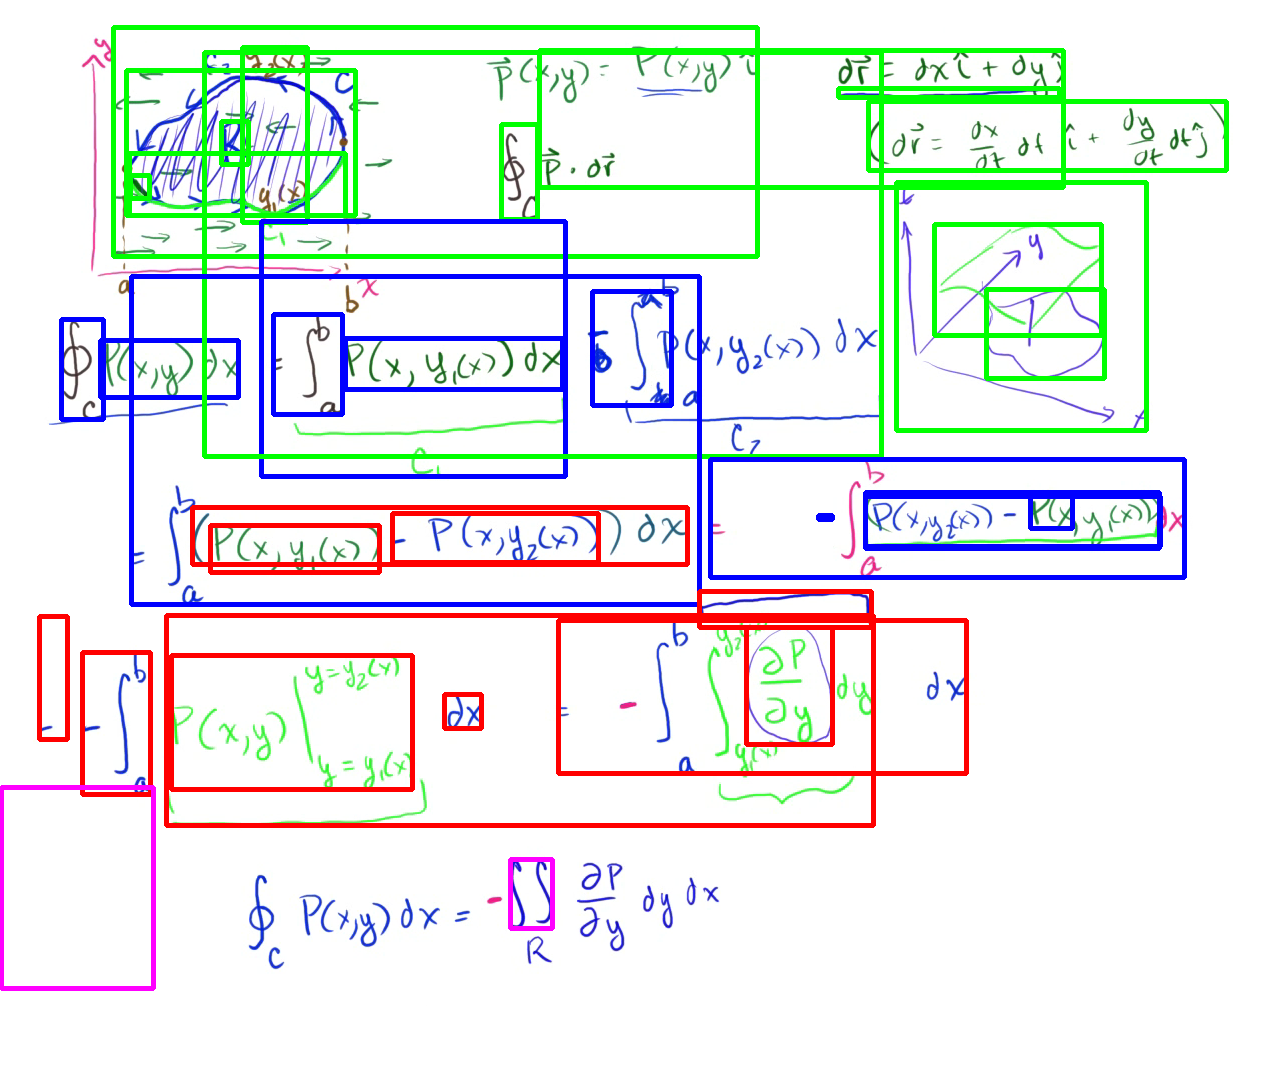 y
C₂ y₂(x)
C
R
y₁(x)
C₁
a
b x
P⃗(x,y) = P(x,y) î
dr⃗ = dx î + dy ĵ
(dr⃗ = dx/dt dt î + dy/dt dt ĵ)
∮_C P⃗ · dr⃗
y
∮_C P(x,y) dx = ∫_a^b P(x, y₁(x)) dx
∫_a^b P(x, y₂(x)) dx
C₁
C₂
= ∫_a^b (P(x, y₁(x)) - P(x, y₂(x))) dx = - ∫_a^b (P(x, y₂(x)) - P(x, y₁(x))) dx
- ∫_a^b P(x,y) |_{y = y₁(x)}^{y = y₂(x)} dx = - ∫_a^b ∫_{y₁(x)}^{y₂(x)} ∂P/∂y dy dx
∮_C P(x,y) dx = - ∬_R ∂P/∂y dy dx